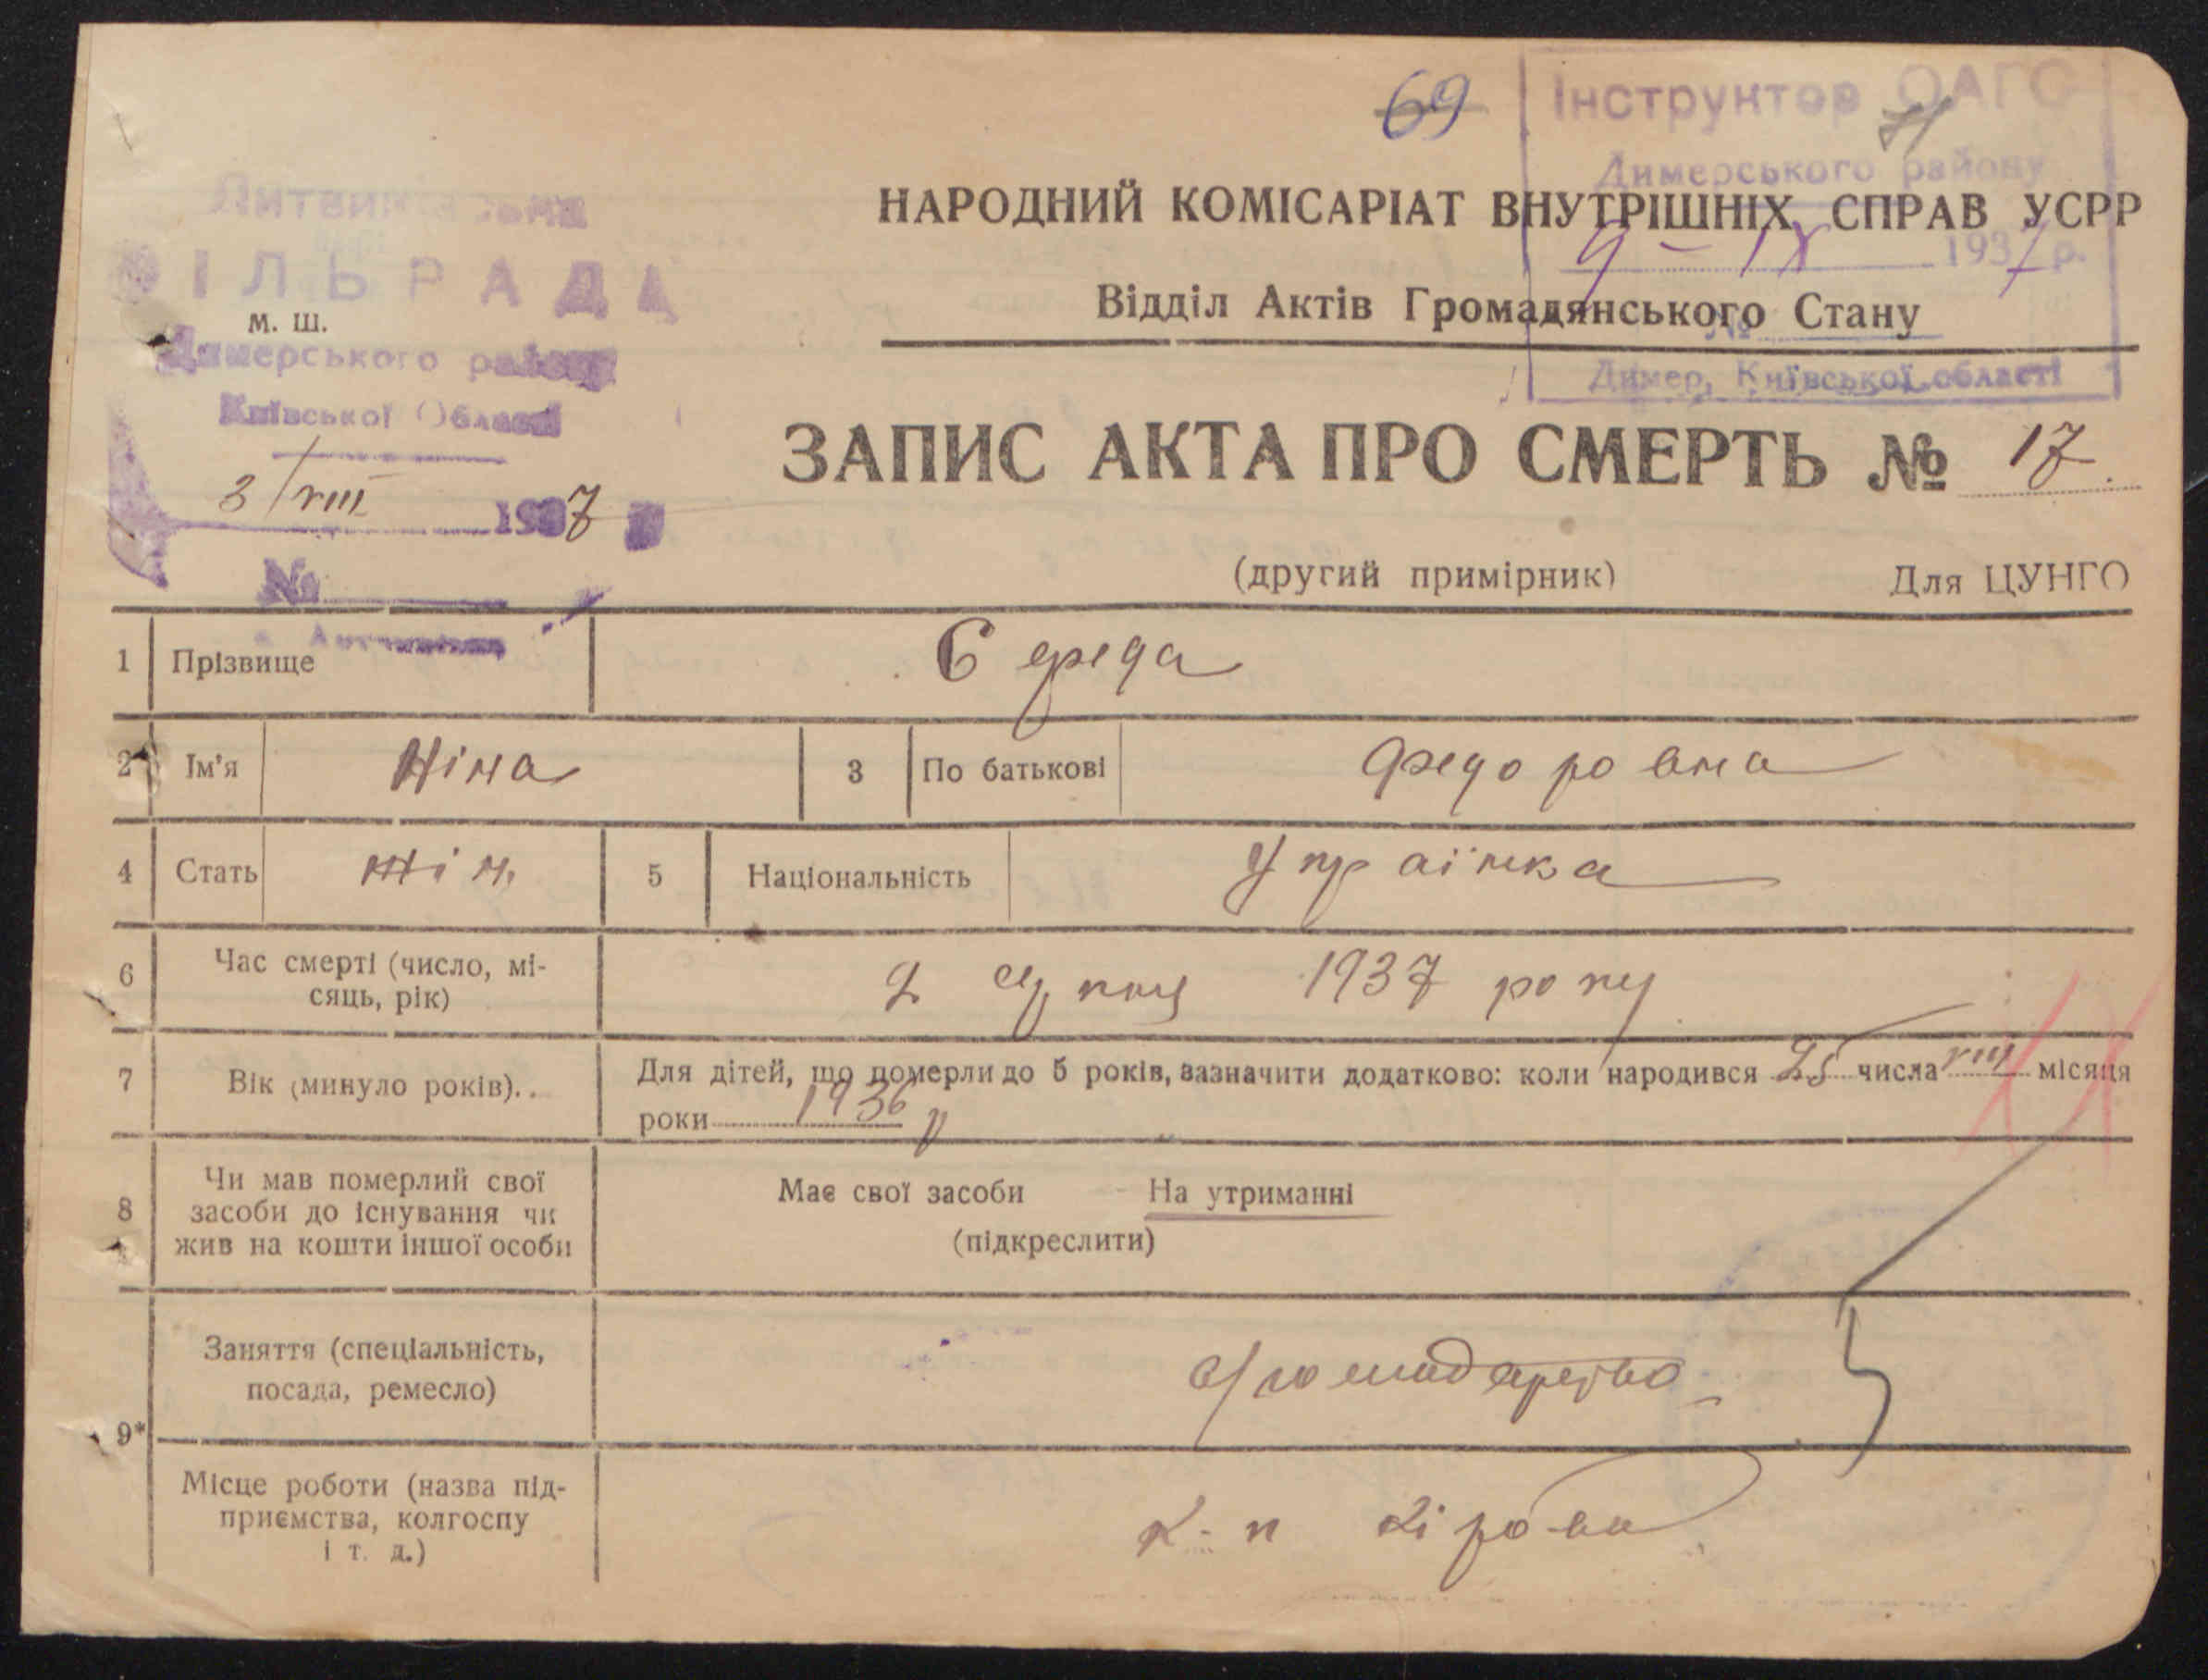 69
Інструктор ОАГС
Димерського району
9 - IX 1937 р.
№
Димер, Київської області
СІЛЬРАДА
м. ш.
Димерського району
Київської Области
3/VIII 1937
№
НАРОДНИЙ КОМІСАРІАТ ВНУТРІШНІХ СПРАВ УСРР
Відділ Актів Громадянського Стану
ЗАПИС АКТА ПРО СМЕРТЬ № 17
(другий примірник) Для ЦУНГО
1 Прізвище Середа
2 Ім'я Ніна 3 По батькові Федоровна
4 Стать жін. 5 Національність Українка
6 Час смерті (число, мі-
сяць, рік) 2 серпня 1937 року
7 Вік (минуло років).. Для дітей, що померли до 5 років, зазначити додатково: коли народився 25 числа VIII місяця
роки 1936 р
8 Чи мав померлий свої
засоби до існування чи
жив на кошти іншої особи
Має свої засоби На утриманні
(підкреслити)
9* Заняття (спеціальність,
посада, ремесло)
Місце роботи (назва під-
приємства, колгоспу
і т. д.)
к-п Кірова